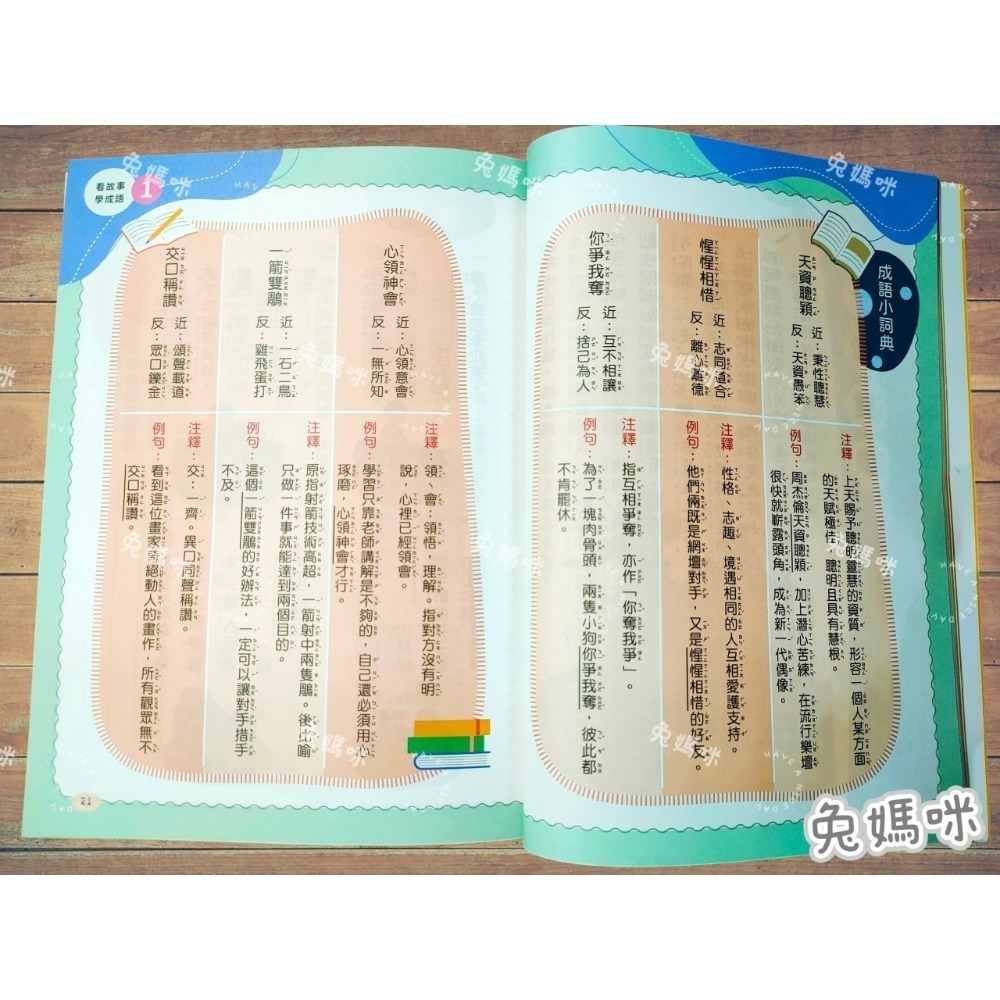 成語小詞典
天資聰穎
近：秉性聰慧
反：天資愚笨
注釋：上天賜予聰明靈慧的資質，形容一個人某方面
的天賦極佳，聰明且具有慧根。
例句：周杰倫天資聰穎，加上潛心苦練，在流行樂壇
很快就嶄露頭角，成為新一代偶像。
惺惺相惜
近：志同道合
反：離心離德
注釋：性格、志趣、境遇相同的人互相愛護支持。
例句：他們倆既是網壇對手，又是惺惺相惜的好友。
你爭我奪
近：互不相讓
反：捨己為人
注釋：指互相爭奪，亦作「你奪我爭」。
例句：為了一塊肉骨頭，兩隻小狗你爭我奪，彼此都
不肯罷休。
心領神會
近：心領意會
反：一無所知
注釋：領、會：領悟，理解。指對方沒有明
說，心裡已經領會。
例句：學習只靠老師講解是不夠的，自己還必須用心
琢磨，心領神會才行。
一箭雙鵰
近：一石二鳥
反：雞飛蛋打
注釋：原指射箭技術高超，一箭射中兩隻鵰。後比喻
只做一件事就能達到兩個目的。
例句：這個一箭雙鵰的好辦法，一定可以讓對手措手
不及。
交口稱讚
近：頌聲載道
反：眾口鑠金
注釋：交：一齊。異口同聲稱讚。
例句：看到這位畫家奇絕動人的畫作，所有觀眾無不
交口稱讚。
看故事
學成語
1
21
兔媽咪